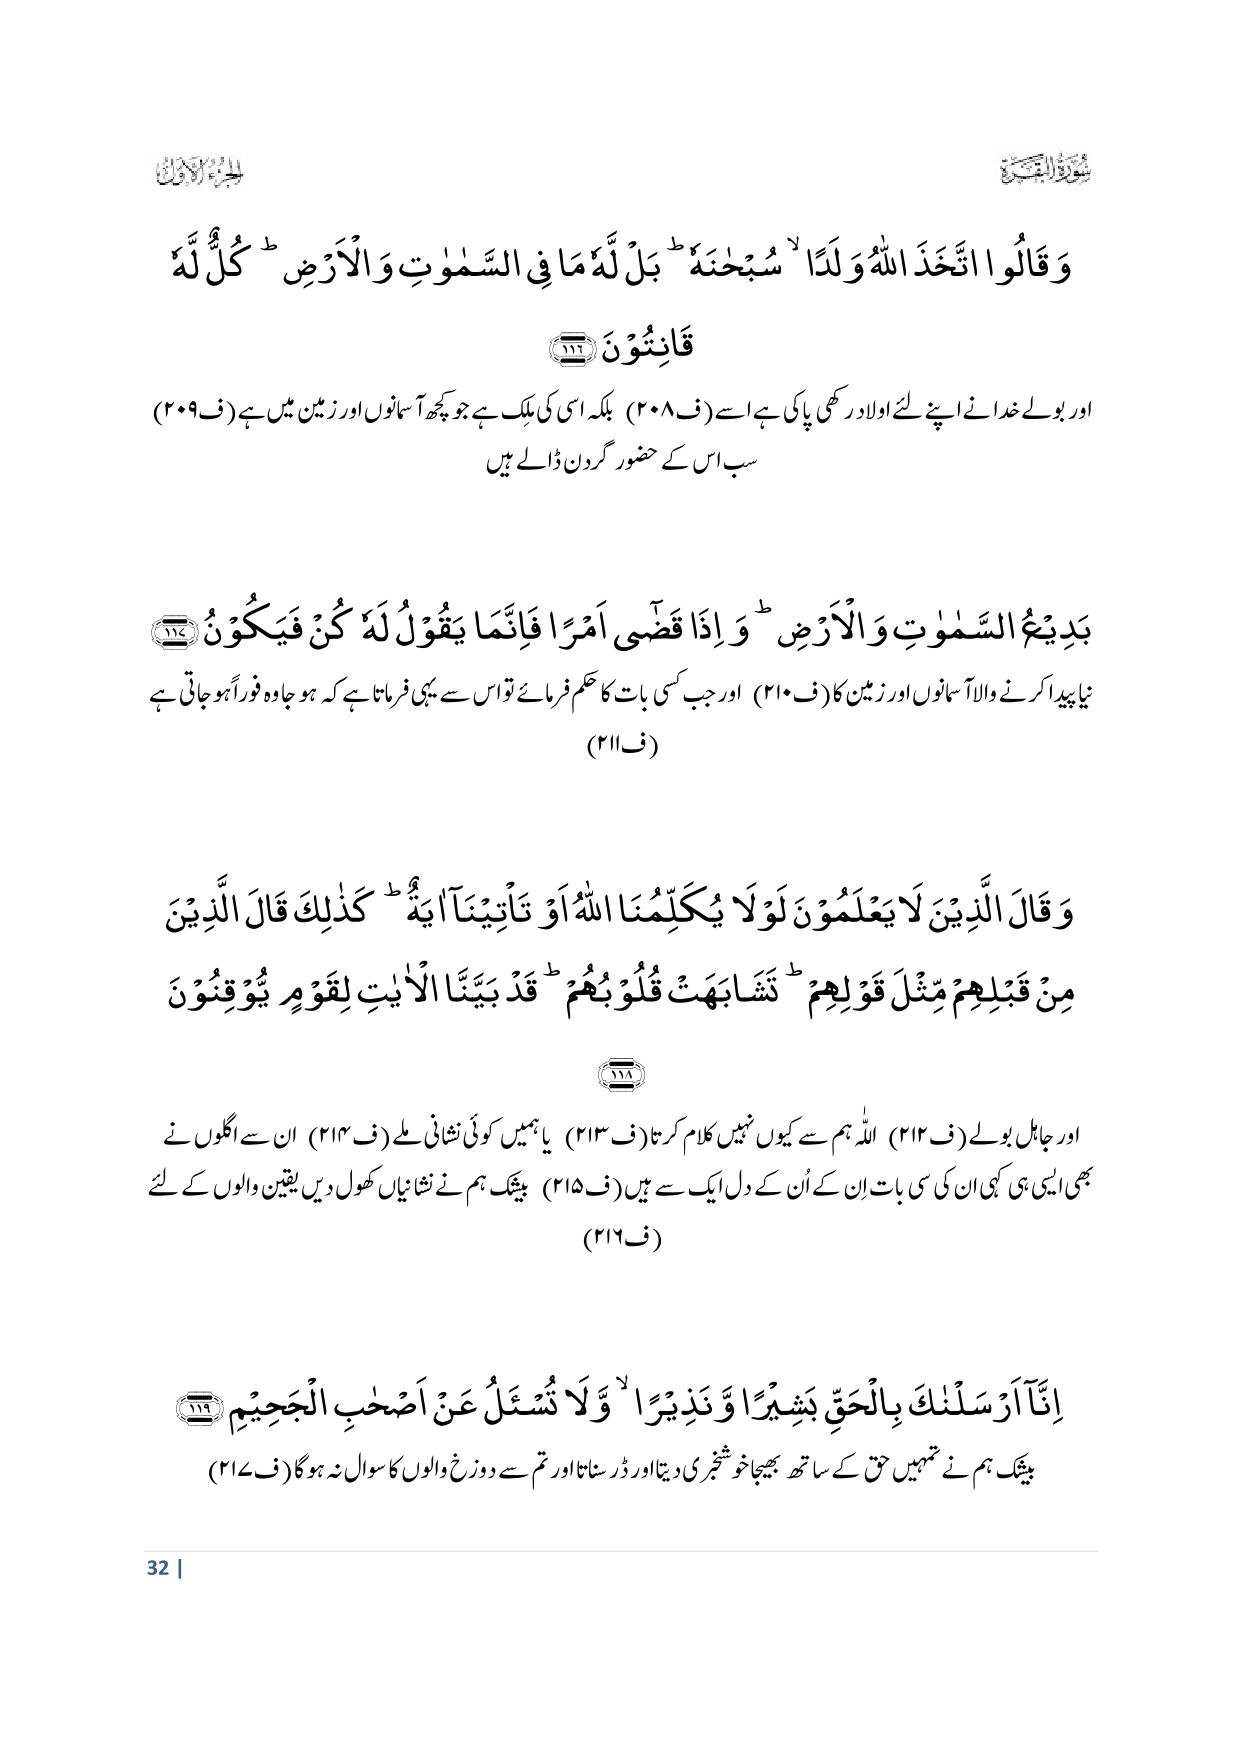 سُوْرَةُ الْبَقَـرَة
الجزء الاوّل
وَ قَالُوا اتَّخَذَ اللّٰهُ وَلَدًا ۙ سُبْحٰنَهٗ ؕ بَلْ لَّهٗ مَا فِی السَّمٰوٰتِ وَ الْاَرْضِ ؕ کُلٌّ لَّهٗ
قَانِتُوْنَ ﴿۱۱۶﴾
اور بولے خدا نے اپنے لئے اولاد رکھی پاکی ہے اسے (ف۲۰۸) بلکہ اسی کی مِلک ہے جو کچھ آسمانوں اور زمین میں ہے (ف۲۰۹)
سب اس کے حضور گردن ڈالے ہیں
بَدِیْعُ السَّمٰوٰتِ وَ الْاَرْضِ ؕ وَ اِذَا قَضٰۤی اَمْرًا فَاِنَّمَا یَقُوْلُ لَهٗ کُنْ فَیَکُوْنُ ﴿۱۱۷﴾
نیا پیدا کرنے والا آسمانوں اور زمین کا (ف۲۱۰) اور جب کسی بات کا حکم فرمائے تو اس سے یہی فرماتا ہے کہ ہو جا وہ فوراً ہو جاتی ہے
(ف۲۱۱)
وَ قَالَ الَّذِیْنَ لَا یَعْلَمُوْنَ لَوْ لَا یُکَلِّمُنَا اللّٰهُ اَوْ تَاْتِیْنَاۤ اٰیَةٌ ؕ کَذٰلِکَ قَالَ الَّذِیْنَ
مِنْ قَبْلِهِمْ مِّثْلَ قَوْلِهِمْ ؕ تَشَابَهَتْ قُلُوْبُهُمْ ؕ قَدْ بَیَّنَّا الْاٰیٰتِ لِقَوْمٍ یُّوْقِنُوْنَ
﴿۱۱۸﴾
اور جاہل بولے (ف۲۱۲) اللّٰہ ہم سے کیوں نہیں کلام کرتا (ف۲۱۳) یا ہمیں کوئی نشانی ملے (ف۲۱۴) ان سے اگلوں نے
بھی ایسی ہی کہی ان کی سی بات اِن کے اُن کے دل ایک سے ہیں (ف۲۱۵) بیشک ہم نے نشانیاں کھول دیں یقین والوں کے لئے
(ف۲۱۶)
اِنَّاۤ اَرْسَلْنٰکَ بِالْحَقِّ بَشِیْرًا وَّ نَذِیْرًا ۙ وَّ لَا تُسْـَٔلُ عَنْ اَصْحٰبِ الْجَحِیْمِ ﴿۱۱۹﴾
بیشک ہم نے تمہیں حق کے ساتھ بھیجا خوشخبری دیتا اور ڈر سناتا اور تم سے دوزخ والوں کا سوال نہ ہوگا (ف۲۱۷)
32 |